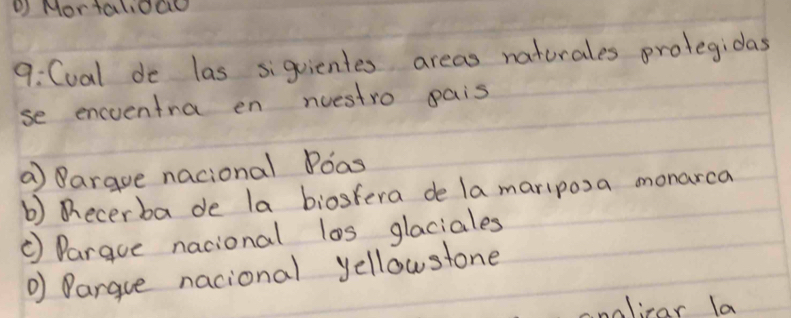 D) Mortalidad
9: Cual de las siguientes areas naturales protegidas
se encuentra en nuestro pais
a) Parque nacional Póas
b) Recerba de la biosfera de la mariposa monarca
c) Parque nacional los glaciales
D) Parque nacional yellowstone
analizar la